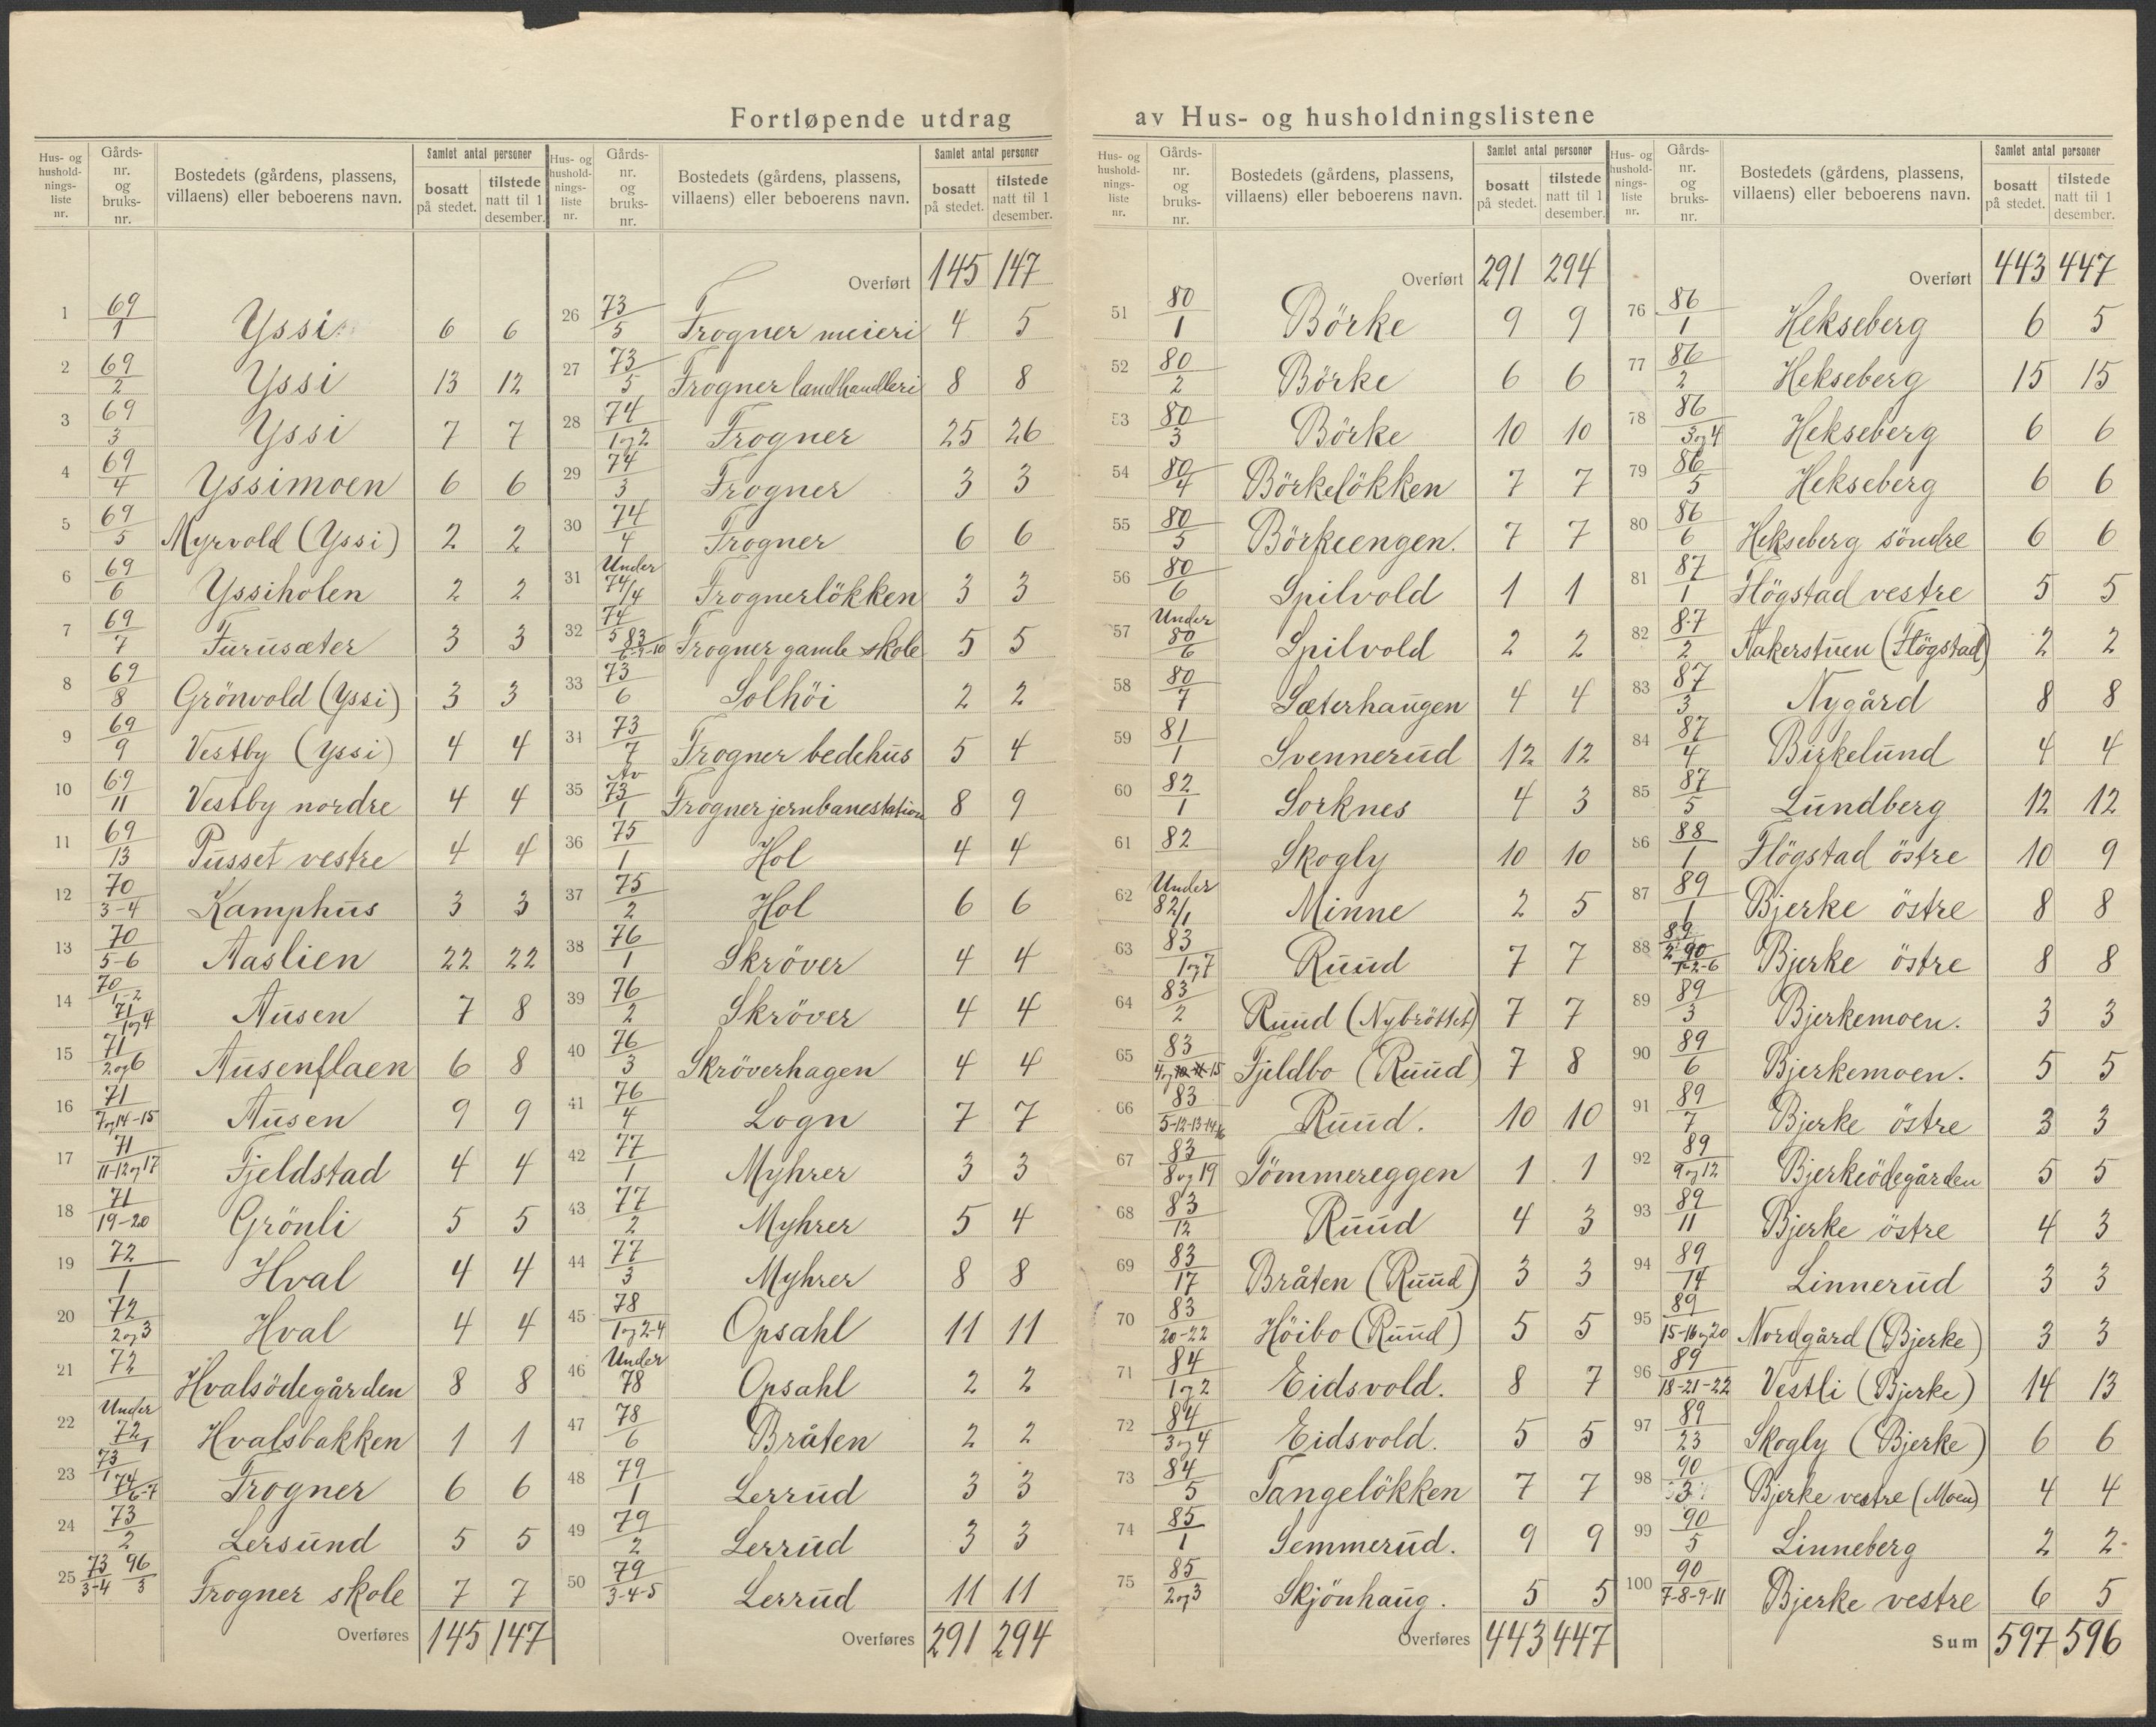 Fortløpende utdrag av Hus- og husholdningslistene
Hus- og husholdnings-liste nr. | Gårds-nr. og bruks-nr. | Bostedets (gårdens, plassens, villaens) eller beboerens navn. | Samlet antal personer bosatt på stedet. | tilstede natt til 1 desember.
1 69/1 Yssi 6 6
2 69/2 Yssi 13 12
3 69/3 Yssi 7 7
4 69/4 Yssimoen 6 6
5 69/5 Myrvold (Yssi) 2 2
6 69/6 Yssiholen 2 2
7 69/7 Furusæter 3 3
8 69/8 Grönvold (Yssi) 3 3
9 69/9 Vestby (Yssi) 4 4
10 69/11 Vestby nordre 4 4
11 69/13 Pusset vestre 4 4
12 70/3-4 Kamphus 3 3
13 70/5-6 Aaslien 22 22
14 70/1-2 71/1og4 Ausen 7 8
15 71/2og6 Ausenflaen 6 8
16 71/7og14-15 Ausen 9 9
17 71/11-12og17 Fjeldstad 4 4
18 71/19-20 Grönli 5 5
19 72/1 Hval 4 4
20 72/2og3 Hval 4 4
21 72 Hvalsödegården 8 8
22 Under 72/1 Hvalsbakken 1 1
23 73/1 74/6-7 Frogner 6 6
24 73/2 Lersund 5 5
25 73/3-4 96/3 Frogner skole 7 7
Overføres 145 147
Hus- og husholdnings-liste nr. | Gårds-nr. og bruks-nr. | Bostedets (gårdens, plassens, villaens) eller beboerens navn. | Samlet antal personer bosatt på stedet. | tilstede natt til 1 desember.
Overført 145 147
26 73/5 Frogner meieri 4 5
27 73/5 Frogner landhandleri 8 8
28 74/1og2 Frogner 25 26
29 74/3 Frogner 3 3
30 74/4 Frogner 6 6
31 Under 74/4 Frognerlökken 3 3
32 74/5 83/6-9-10 Frogner gamle skole 5 5
33 73/6 Solhöi 2 2
34 73/7 Frogner bedehus 5 4
35 Av 73/1 Frogner jernbanestation 8 9
36 75/1 Hol 4 4
37 75/2 Hol 6 6
38 76/1 Skröver 4 4
39 76/2 Skröver 4 4
40 76/3 Skröverhagen 4 4
41 76/4 Logn 7 7
42 77/1 Myhrer 3 3
43 77/2 Myhrer 5 4
44 77/3 Myhrer 8 8
45 78/1og2-4 Opsahl 11 11
46 Under 78 Opsahl 2 2
47 78/6 Bråten 2 2
48 79/1 Lerrud 3 3
49 79/2 Lerrud 3 3
50 79/3-4-5 Lerrud 11 11
Overføres 291 294
Hus- og husholdnings-liste nr. | Gårds-nr. og bruks-nr. | Bostedets (gårdens, plassens, villaens) eller beboerens navn. | Samlet antal personer bosatt på stedet. | tilstede natt til 1 desember.
Overført 291 294
51 80/1 Börke 9 9
52 80/2 Börke 6 6
53 80/3 Börke 10 10
54 80/4 Börkelökken 7 7
55 80/5 Börkeengen. 7 7
56 80/6 Spilvold 1 1
57 Under 80/6 Spilvold 2 2
58 80/7 Sæterhaugen 4 4
59 81/1 Svennerud 12 12
60 82/1 Sorknes 4 3
61 82 Skogly 10 10
62 Under 82/1 Minne 2 5
63 83/1og7 Ruud 7 7
64 83/2 Ruud (Nybröttet) 7 7
65 83/4og 15 Fjeldbo (Ruud) 7 8
66 83/5-12-13-14 Ruud. 10 10
67 83/8og19 Tömmereggen 1 1
68 83/12 Ruud 4 3
69 83/17 Bråten (Ruud) 3 3
70 83/20-22 Höibo (Ruud) 5 5
71 84/1og2 Eidsvold. 8 7
72 84/3og4 Eidsvold. 5 5
73 84/5 Tangelökken 7 7
74 85/1 Semmerud. 9 9
75 85/2og3 Skjönhaug. 5 5
Overføres 443 447
Hus- og husholdnings-liste nr. | Gårds-nr. og bruks-nr. | Bostedets (gårdens, plassens, villaens) eller beboerens navn. | Samlet antal personer bosatt på stedet. | tilstede natt til 1 desember.
Overført 443 447
76 86/1 Hekseberg 6 5
77 86/2 Hekseberg 15 15
78 86/3og4 Hekseberg 6 6
79 86/5 Hekseberg 6 6
80 86/6 Hekseberg söndre 6 6
81 87/1 Högstad vestre 5 5
82 87/2 Aakerstuen (Flögstad) 2 2
83 87/3 Nygård 8 8
84 87/4 Birkelund 4 4
85 87/5 Lundberg 12 12
86 88/1 Flögstad östre 10 9
87 89/1 Bjerke östre 8 8
88 89/2 90/1-2-6 Bjerke östre 8 8
89 89/3 Bjerkemoen. 3 3
90 89/6 Bjerkemoen. 5 5
91 89/7 Bjerke östre 3 3
92 89/9og12 Bjerkeödegården 5 5
93 89/11 Bjerke östre 4 3
94 89/14 Linnerud 3 3
95 89/15-16og20 Nordgård (Bjerke) 3 3
96 89/18-21-22 Vestli (Bjerke) 14 13
97 89/23 Skogly (Bjerke) 6 6
98 90/3 Bjerke vestre (Moen) 4 4
99 90/5 Linneberg 2 2
100 90/7-8-9-11 Bjerke vestre 6 5
Sum 597 596